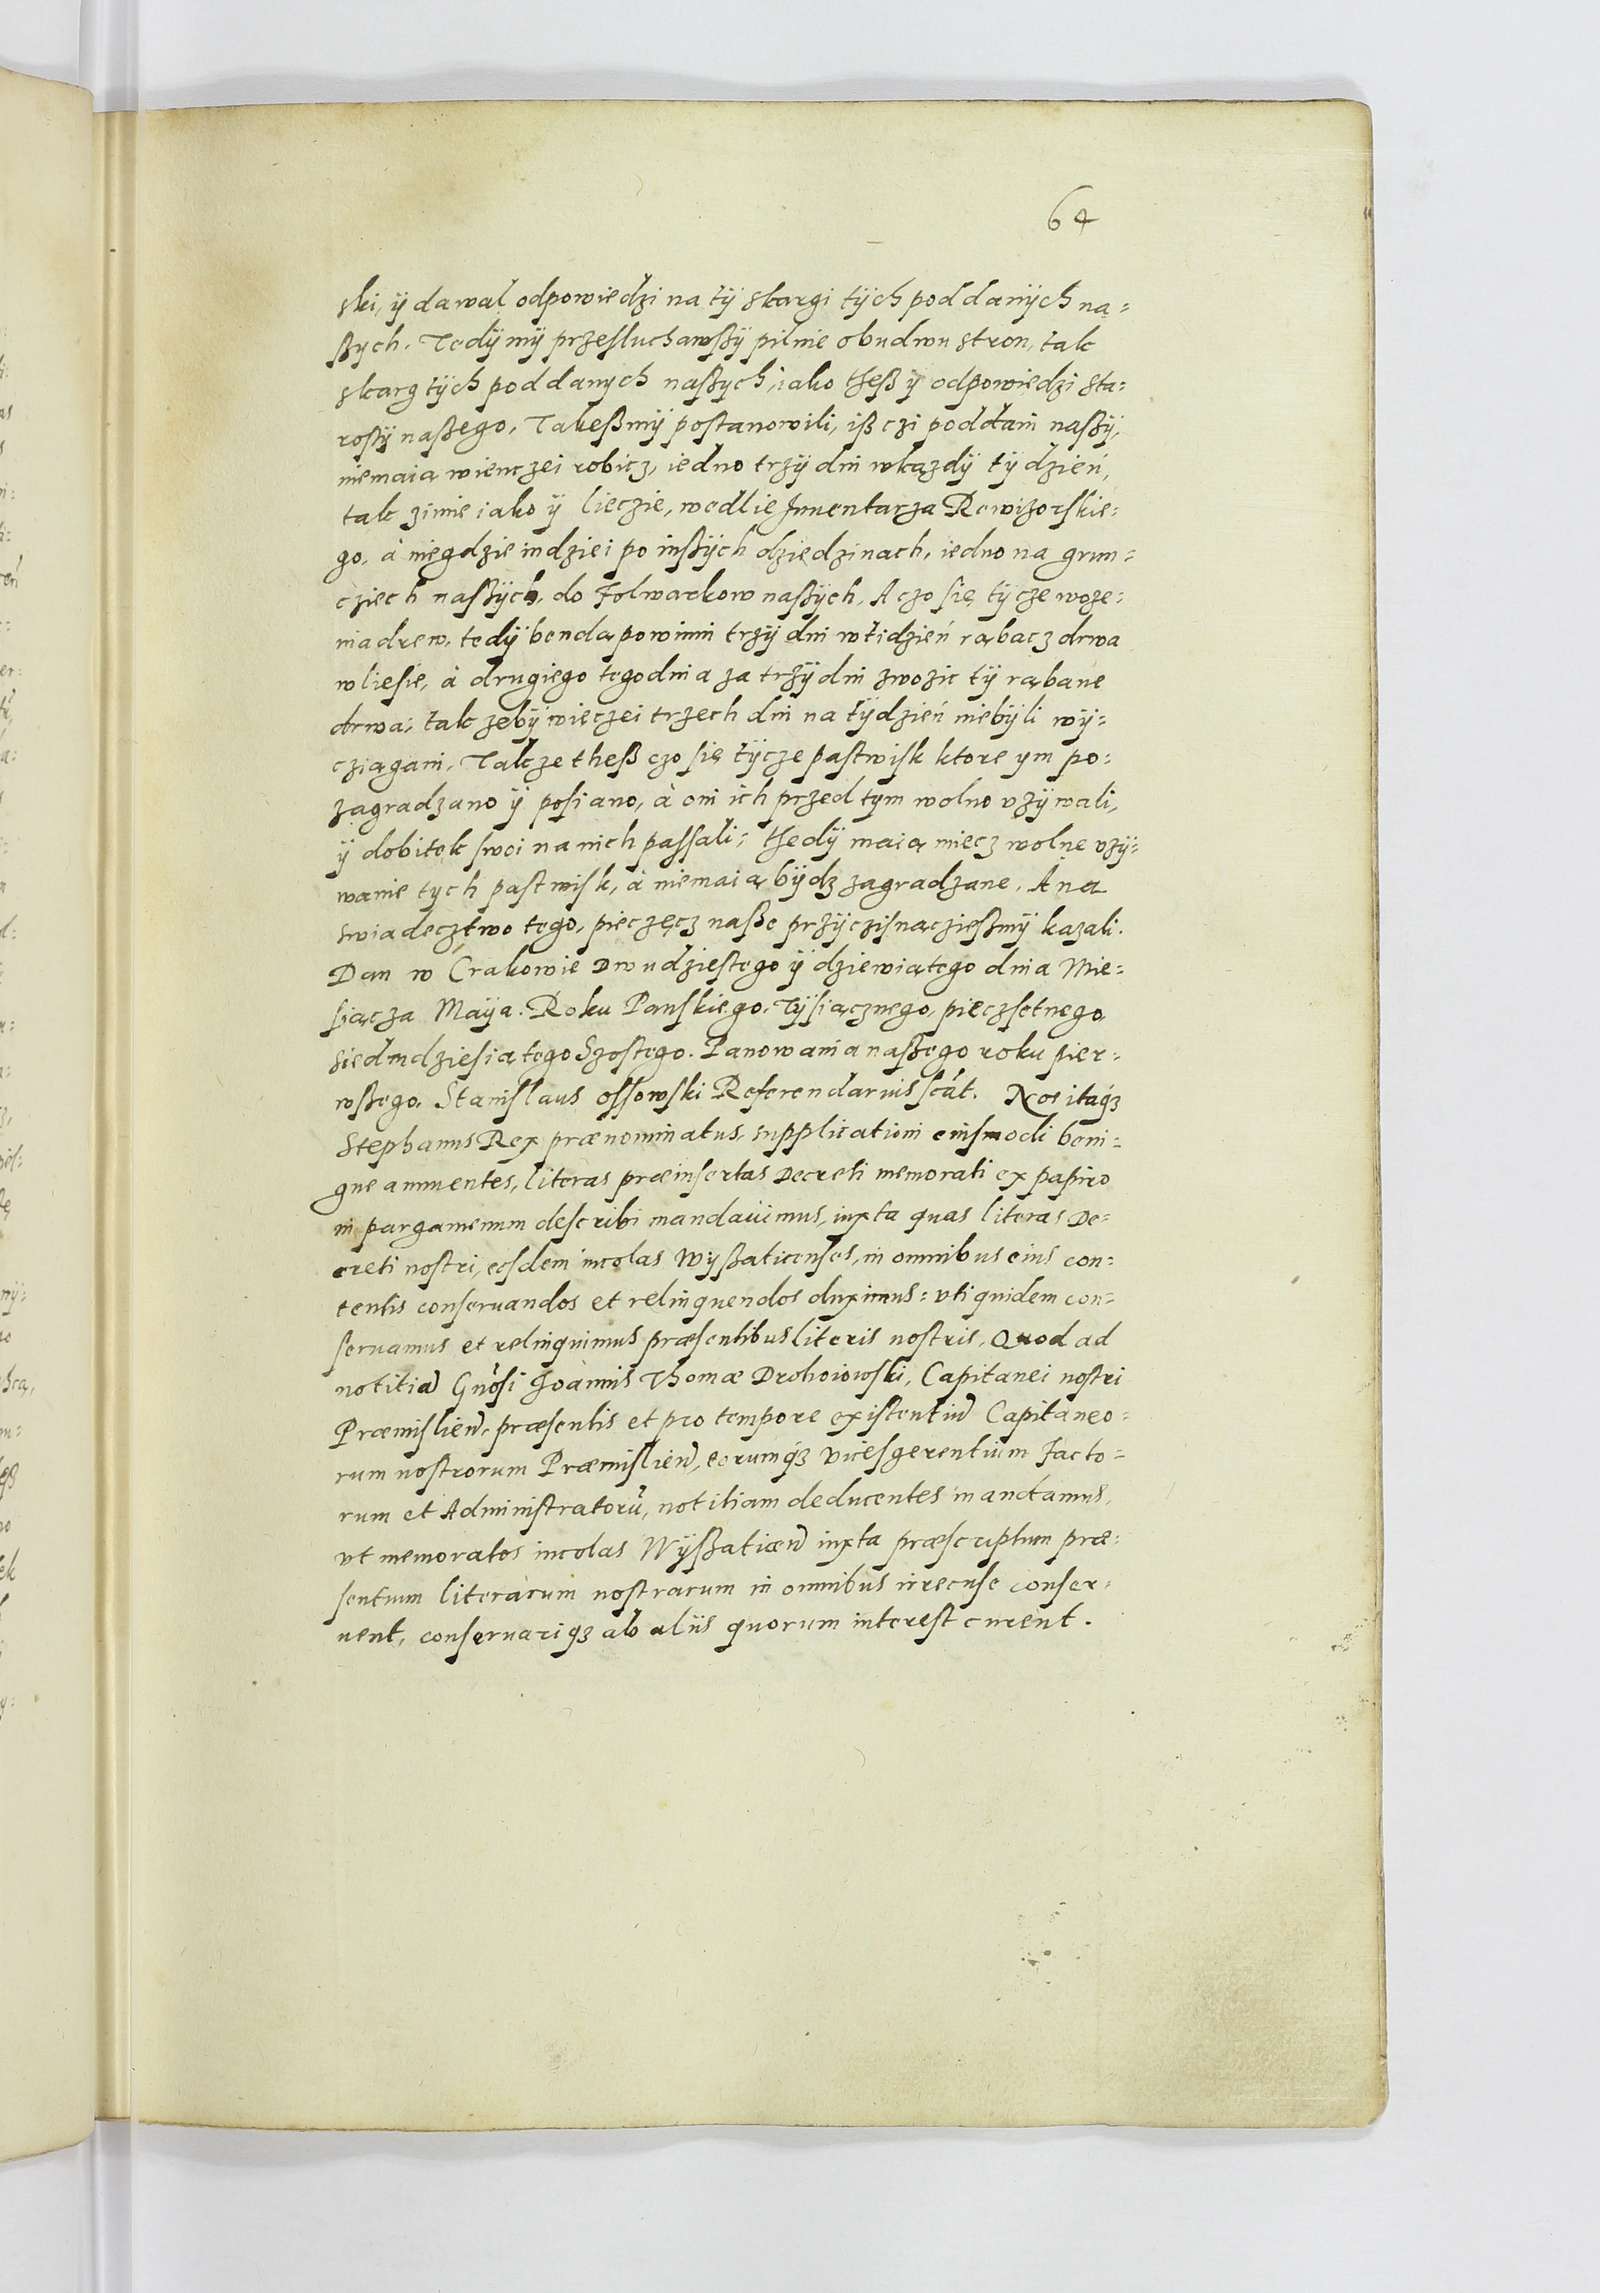 64
ski, ÿ dawał odpowiedzi na tÿ skargi tÿch poddanÿch na=
ßych. Tedÿ mÿ przesłuchawßÿ pilnie obudwu stron, tak
skarg tÿch poddanych naßych, iako theß ÿ odpowiedzi sta=
rostÿ naßego, Takeßmÿ postanowili, iß czi poddani naßÿ,
niemaią wienczei robicz, iedno trzÿ dni wkazdÿ tÿdzień,
tak zimie iako ÿ lieczie, wedlie Jnuentarza Rewizorskie=
go, à niegdzieindziei po inßÿch dziedzinach, iedno na grun=
cziech naßÿch, do Folwarkow naßÿch, A czo się tÿcze woze=
nia drew, tedÿ bendą powinni trzÿ dni wtidzień rąbacz drwa
wliesie, à drugiego tegodnia za trzÿ dni zwozic tÿ rąbane
drwa; tak zebÿ wieczei trzech dni na tÿdzień niebÿli wÿ=
cziągani. Takze theß czo się tÿcze pastwisk ktore ym po=
zagradzano ÿ posiano, à oni ich przed tym wolno vzÿwali,
ÿ dobitek swoi na nich passali; thedÿ maią miecz wolne vzÿ=
wanie tych pastwisk, à niemaią bÿdz zagradzane. A na
swiadecztwo tego, pieczęcz naße przÿczisnącziesmÿ kazali.
Dan w Crakowie Dwudziestego ÿ dziewiątego dnia Mie=
siącza Maÿa. Roku Panskiego. Tÿsiącznego, pięczsetnego,
siedmdziesiątego Szostego. Panowania naßego roku pier=
wßego. Stanislaus ossowski Referendarius scät. Nos itaq3
Stephanus Rex prænominatus, supplicationi eiusmodi beni=
gne annuentes, literas præinsertas Decreti memorati ex papiro
in pargamenum describi mandauimus, iuxta quas literas De=
creti nostri, eosdem incolas Wyßaticenses, in omnibus eius con=
tentis conseruandos et relinquendos duximus: vti quidem con=
seruamus et relinquimus præsentibus literis nostris, Quod ad
notitiã Gnosi Joannis Thomæ Drohoiowski, Capitanei nostri
Præmisliên, præsentis et pro tempore existentiũ Capitaneo=
rum nostrorum Præmisliên, eorumq3 vicesgerentium Facto=
rum et Administratorũ, notitiam deducentes mandamus,
vt memoratos incolas Wÿßaticên iuxta præscriptum præ=
sentium literarum nostrarum in omnibus irrecuse conser=
uent, conseruariq3 ab aliis quorum interest curent.